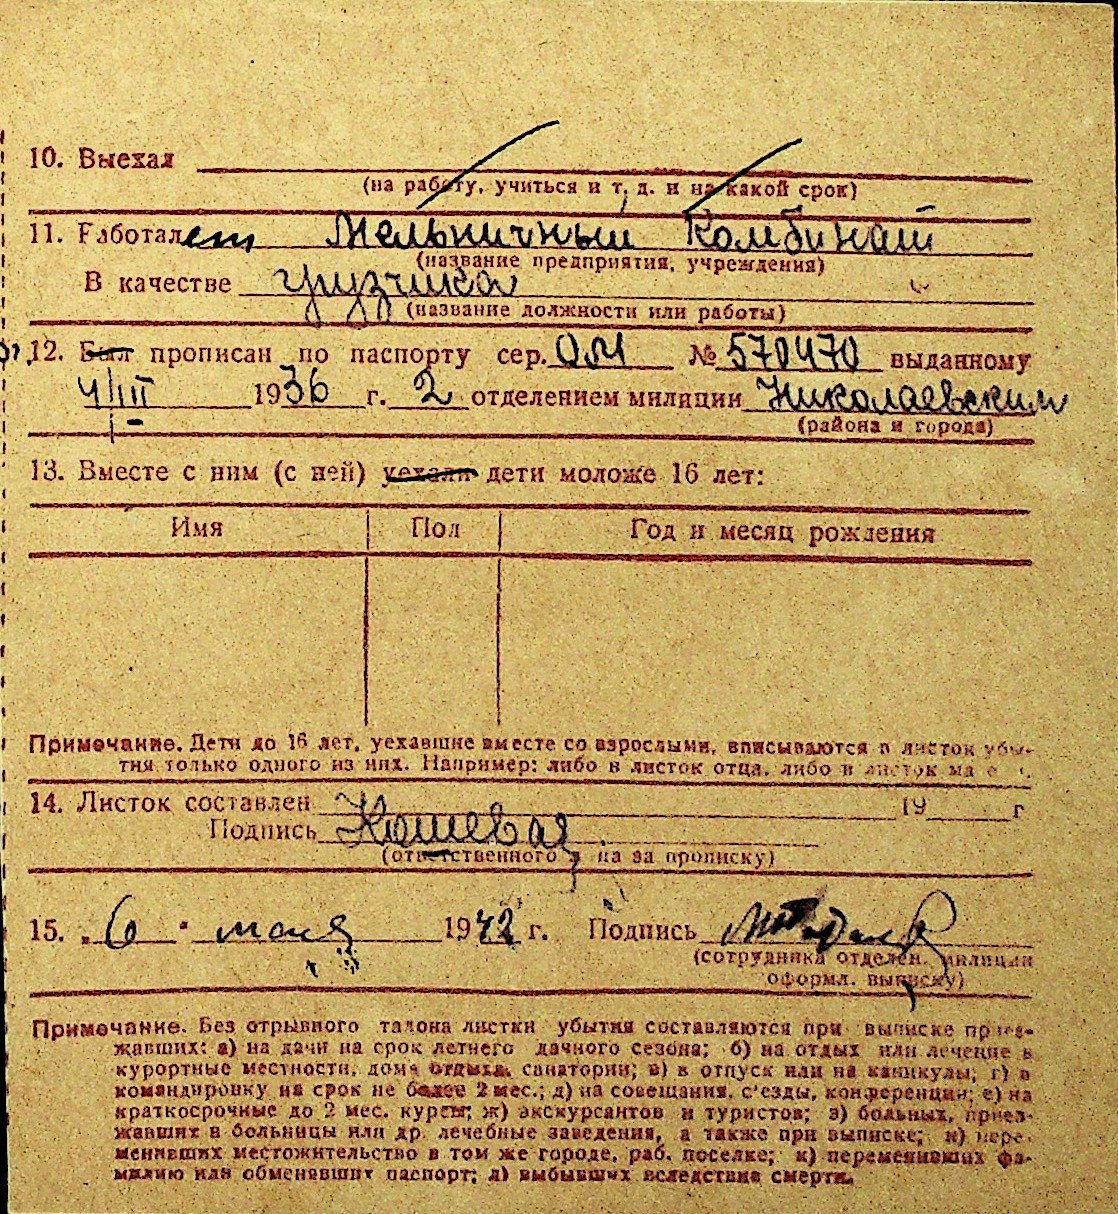 10. Выехал
(на работу, учиться и т. д. и на какой срок)
11. Работает Мельничный Комбинат
(название предприятия, учреждения)
В качестве грузчика
(название должности или работы)
12. Был прописан по паспорту сер. ОМ № 570470 выданному
4/III 1936 г. 2 отделением милиции Николаевским
(района и города)
13. Вместе с ним (с ней) уехали дети моложе 16 лет:
Имя Пол Год и месяц рождения
Примечание. Дети до 16 лет, уехавшие вместе со взрослыми, вписываются в листок убы-
тия только одного из них. Например: либо в листок отца, либо в листок
14. Листок составлен 19 г
Подпись Кошевая
(ответственного на за прописку)
15. „6" мая 1942 г. Подпись
(сотрудника отделен. милиции
оформл. выписку)
Примечание. Без отрывного талона листки убытия составляются при выписке приез-
жавших: а) на дачи на срок летнего дачного сезона; б) на отдых или лечение в
курортные местности, дома отдыха, санатории; в) в отпуск или на каникулы; г) в
командировку на срок не более 2 мес.; д) на совещания, с'езды, конференции; е) на
краткосрочные до 2 мес. курсы; ж) экскурсантов и туристов; з) больных, приез-
жавших в больницы или др. лечебные заведения, а также при выписке; и) пере-
менивших местожительство в том же городе, раб. поселке; к) переменивших фа-
милию или обменявших паспорт; л) выбывших вследствие смерти.